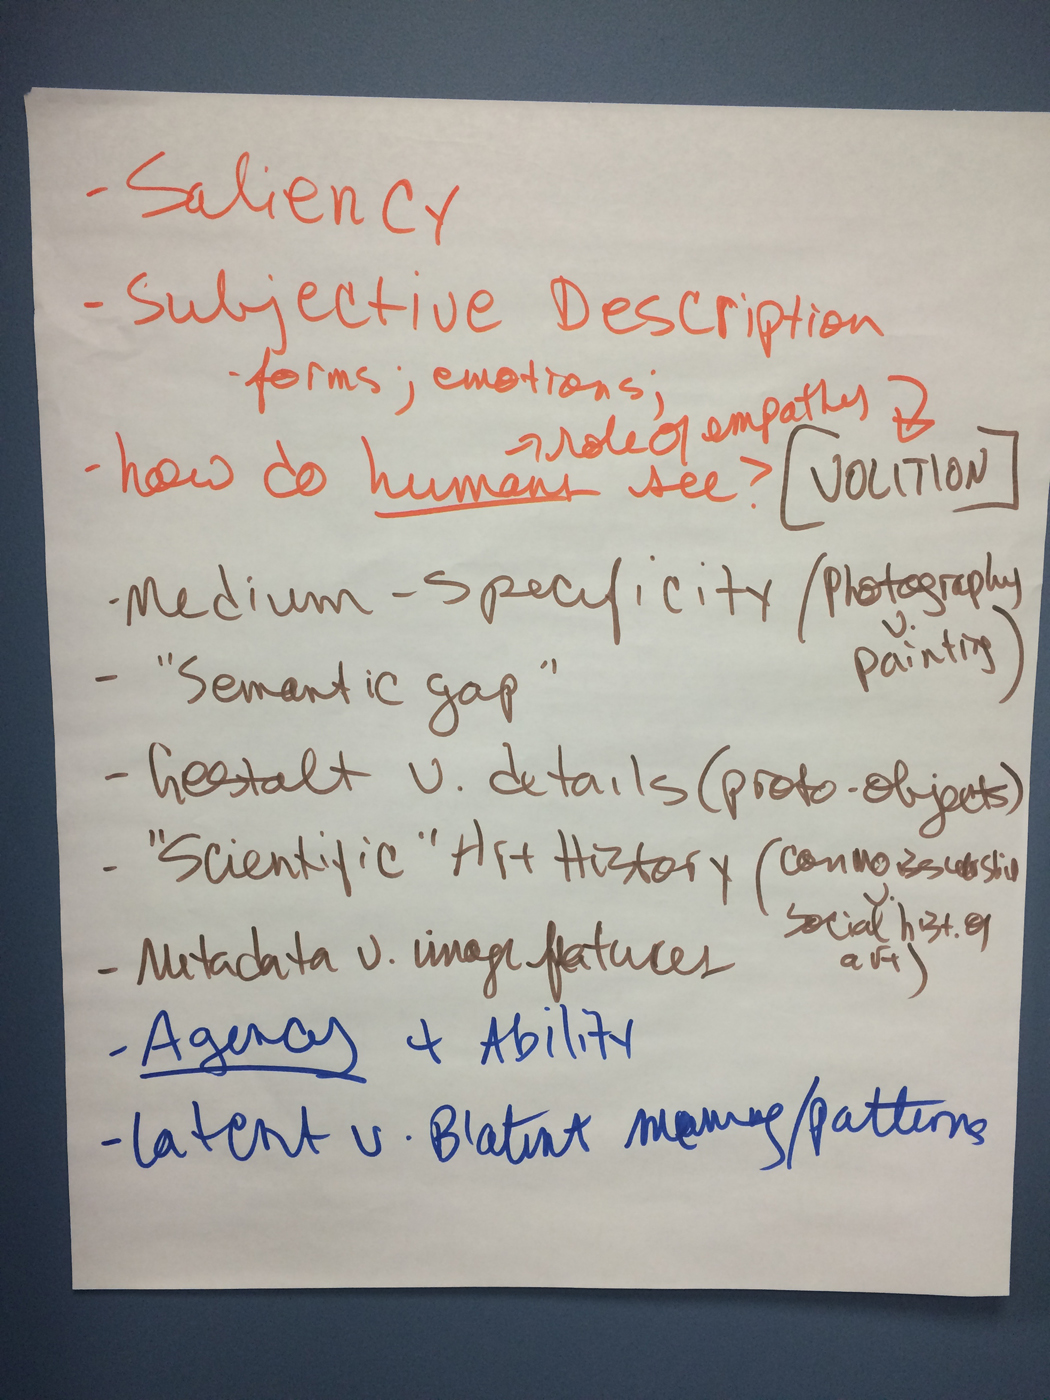 - Saliency
- Subjective Description
- forms; emotions;
→ role of empathy
- how do humans see? [VOLITION]
- Medium-specificity (photography
v.
painting)
- "Semantic gap"
- Gestalt v. details (proto-objects)
- "Scientific" Art History (connoisseurship
v.
social hist. of
art)
- Metadata v. image features
- Agency + Ability
- Latent v. Blatent meaning/patterns